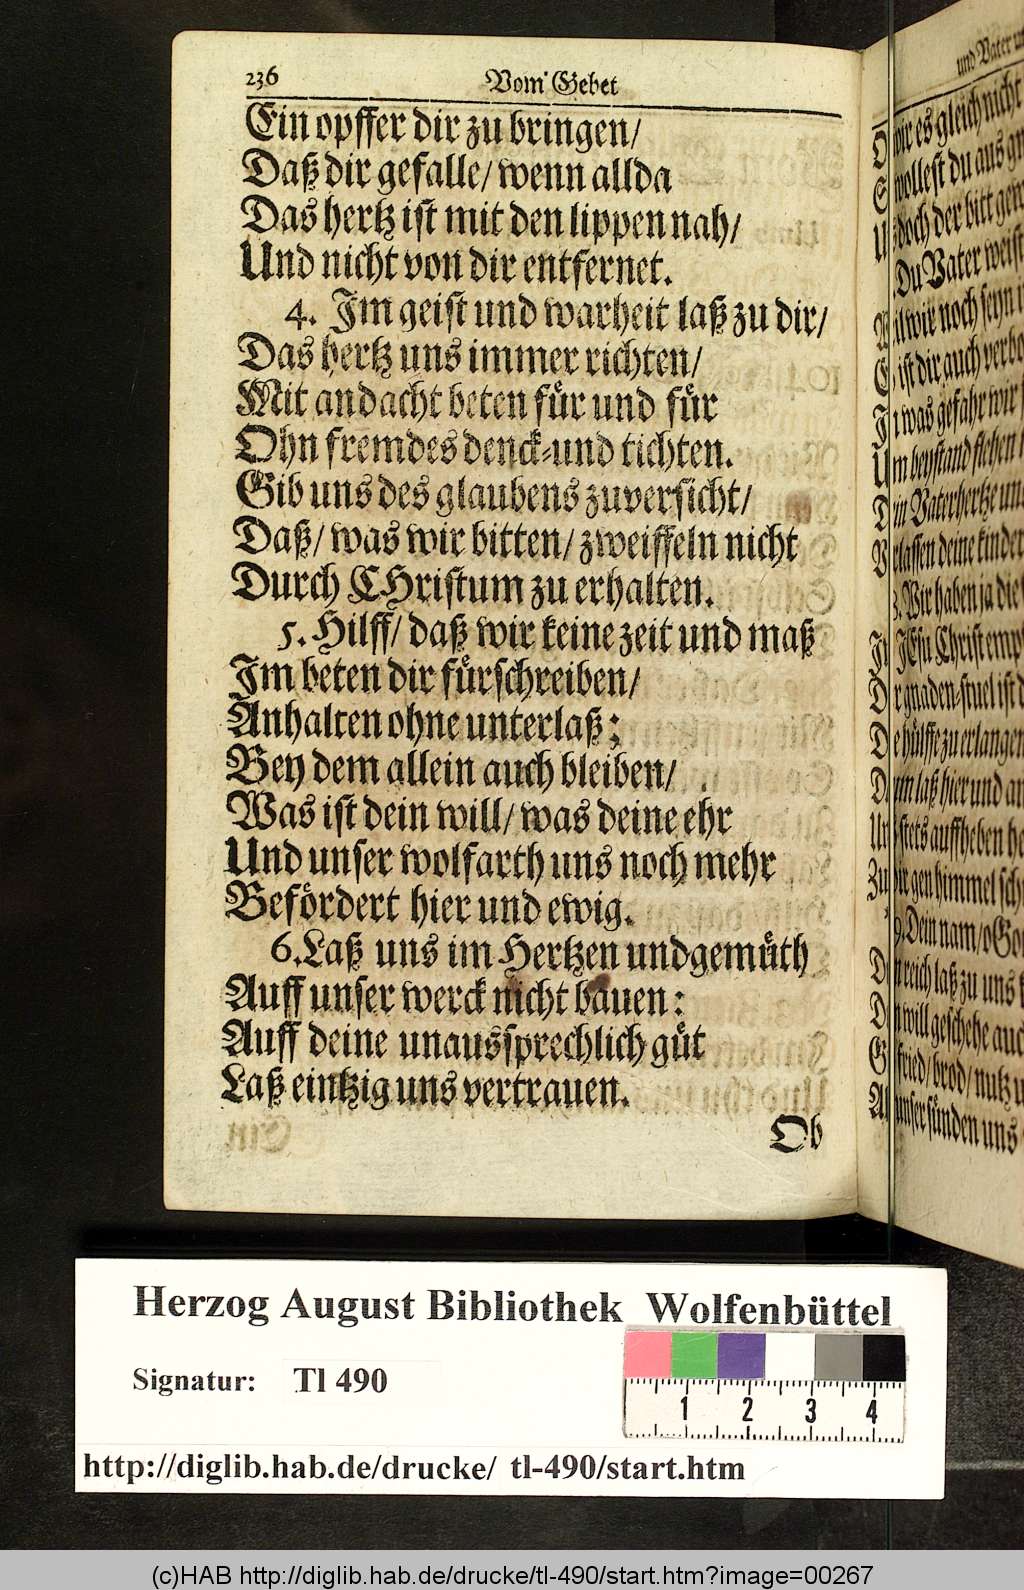 236 Vom Gebet
Ein opffer dir zu bringen/
Daß dir gefalle/ wenn allda
Das hertz ist mit den lippen nah/
Und nicht von dir entfernet.
4. Im geist und warheit laß zu dir/
Das hertz uns immer richten/
Mit andacht beten für und für
Ohn fremdes denck-und tichten.
Gib uns des glaubens zuversicht/
Daß/ was wir bitten/ zweiffeln nicht
Durch CHristum zu erhalten.
5. Hilff/ daß wir keine zeit und maß
Im beten dir fürschreiben/
Anhalten ohne unterlaß;
Bey dem allein auch bleiben/
Was ist dein will/ was deine ehr
Und unser wolfarth uns noch mehr
Befördert hier und ewig.
6. Laß uns im Hertzen und gemüth
Auff unser werck nicht bauen:
Auff deine unaussprechlich güt
Laß eintzig uns vertrauen.
Ob
und Vater
wir es gleich nicht
wollest du aus
doch der bitt
Du Vater weist
wir noch seyn
ist dir auch
was gefahr wir
beystand flehen
Vaterhertze
deine kinder
Wir haben ja die
JEsu Christ
gnaden-stuel ist
hülffe zu erlangen
laß hier und
stets auffheben
gen himmel
Dein nam/ o
reich laß zu uns
will geschehe auch
fried/ brod/ nutz
unser sünden uns
Herzog August Bibliothek Wolfenbüttel
Signatur: Tl 490
1 2 3 4
http://diglib.hab.de/drucke/ tl-490/start.htm
(c)HAB http://diglib.hab.de/drucke/tl-490/start.htm?image=00267